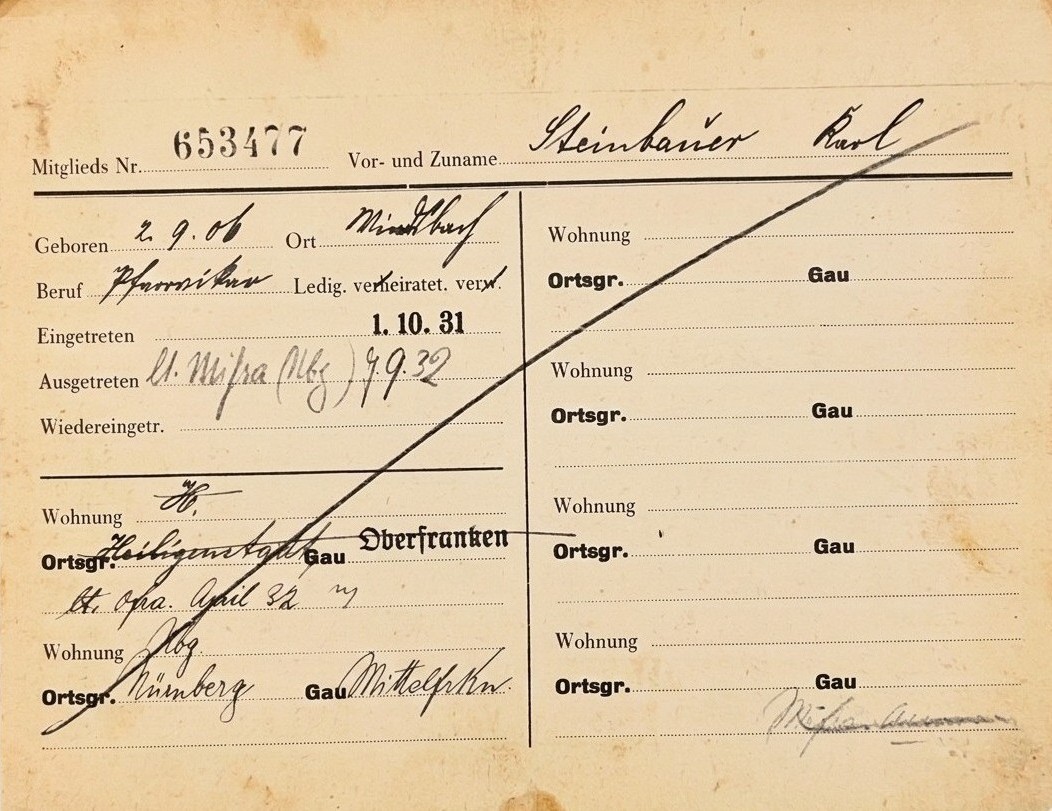 Mitglieds Nr. 653477 Vor- und Zuname Steinbauer Karl
Geboren 2. 9. 06 Ort Windsbach
Beruf Pfarrvikar Ledig. verheiratet. verw.
Eingetreten 1. 10. 31
Ausgetreten lt. Mifra (Nbg) 7.9.32
Wiedereingetr.
Wohnung H.
Ortsgr. Heiligenstadt Gau Oberfranken
lt. Ofra. April 32
Wohnung Nbg.
Ortsgr. Nürnberg Gau Mittelfrkn.
Wohnung
Ortsgr. Gau
Wohnung
Ortsgr. Gau
Wohnung
Ortsgr. Gau
Wohnung
Ortsgr. Gau
Mifra